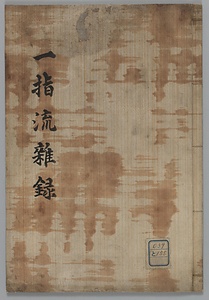 一指流雜録